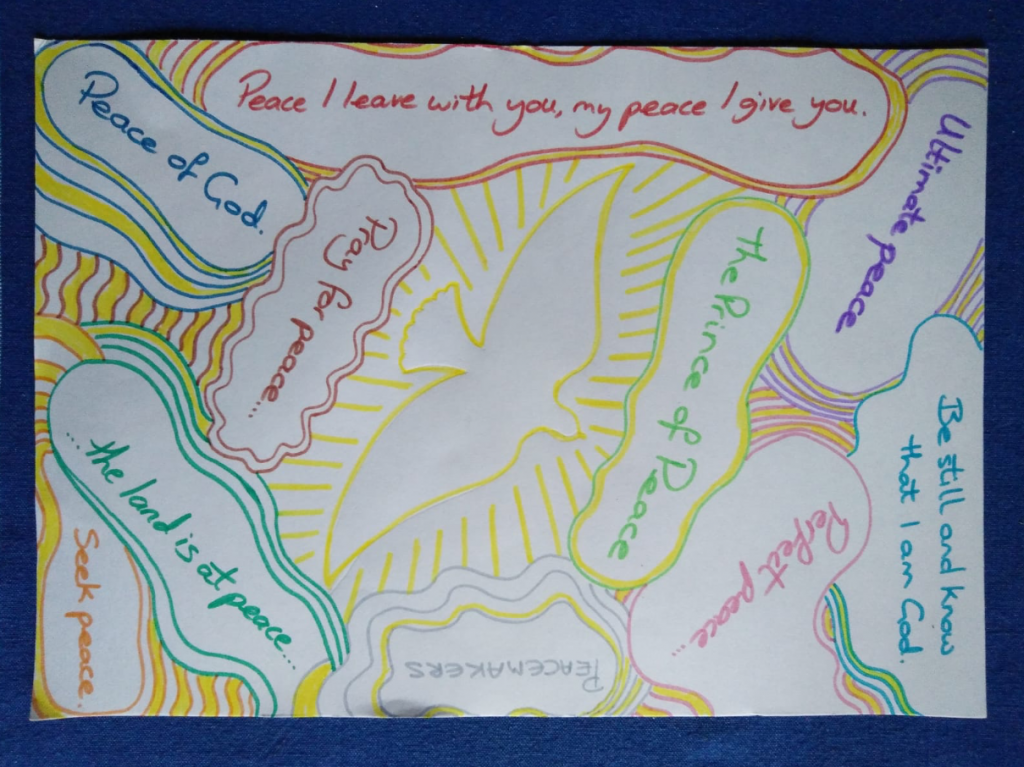 Peace of God.
Peace I leave with you, my peace I give you.
Ultimate peace
Pray for peace...
the Prince of Peace
Be still and know
that I am God.
Perfect peace...
...the land is at peace...
Seek peace.
PEACEMAKERS